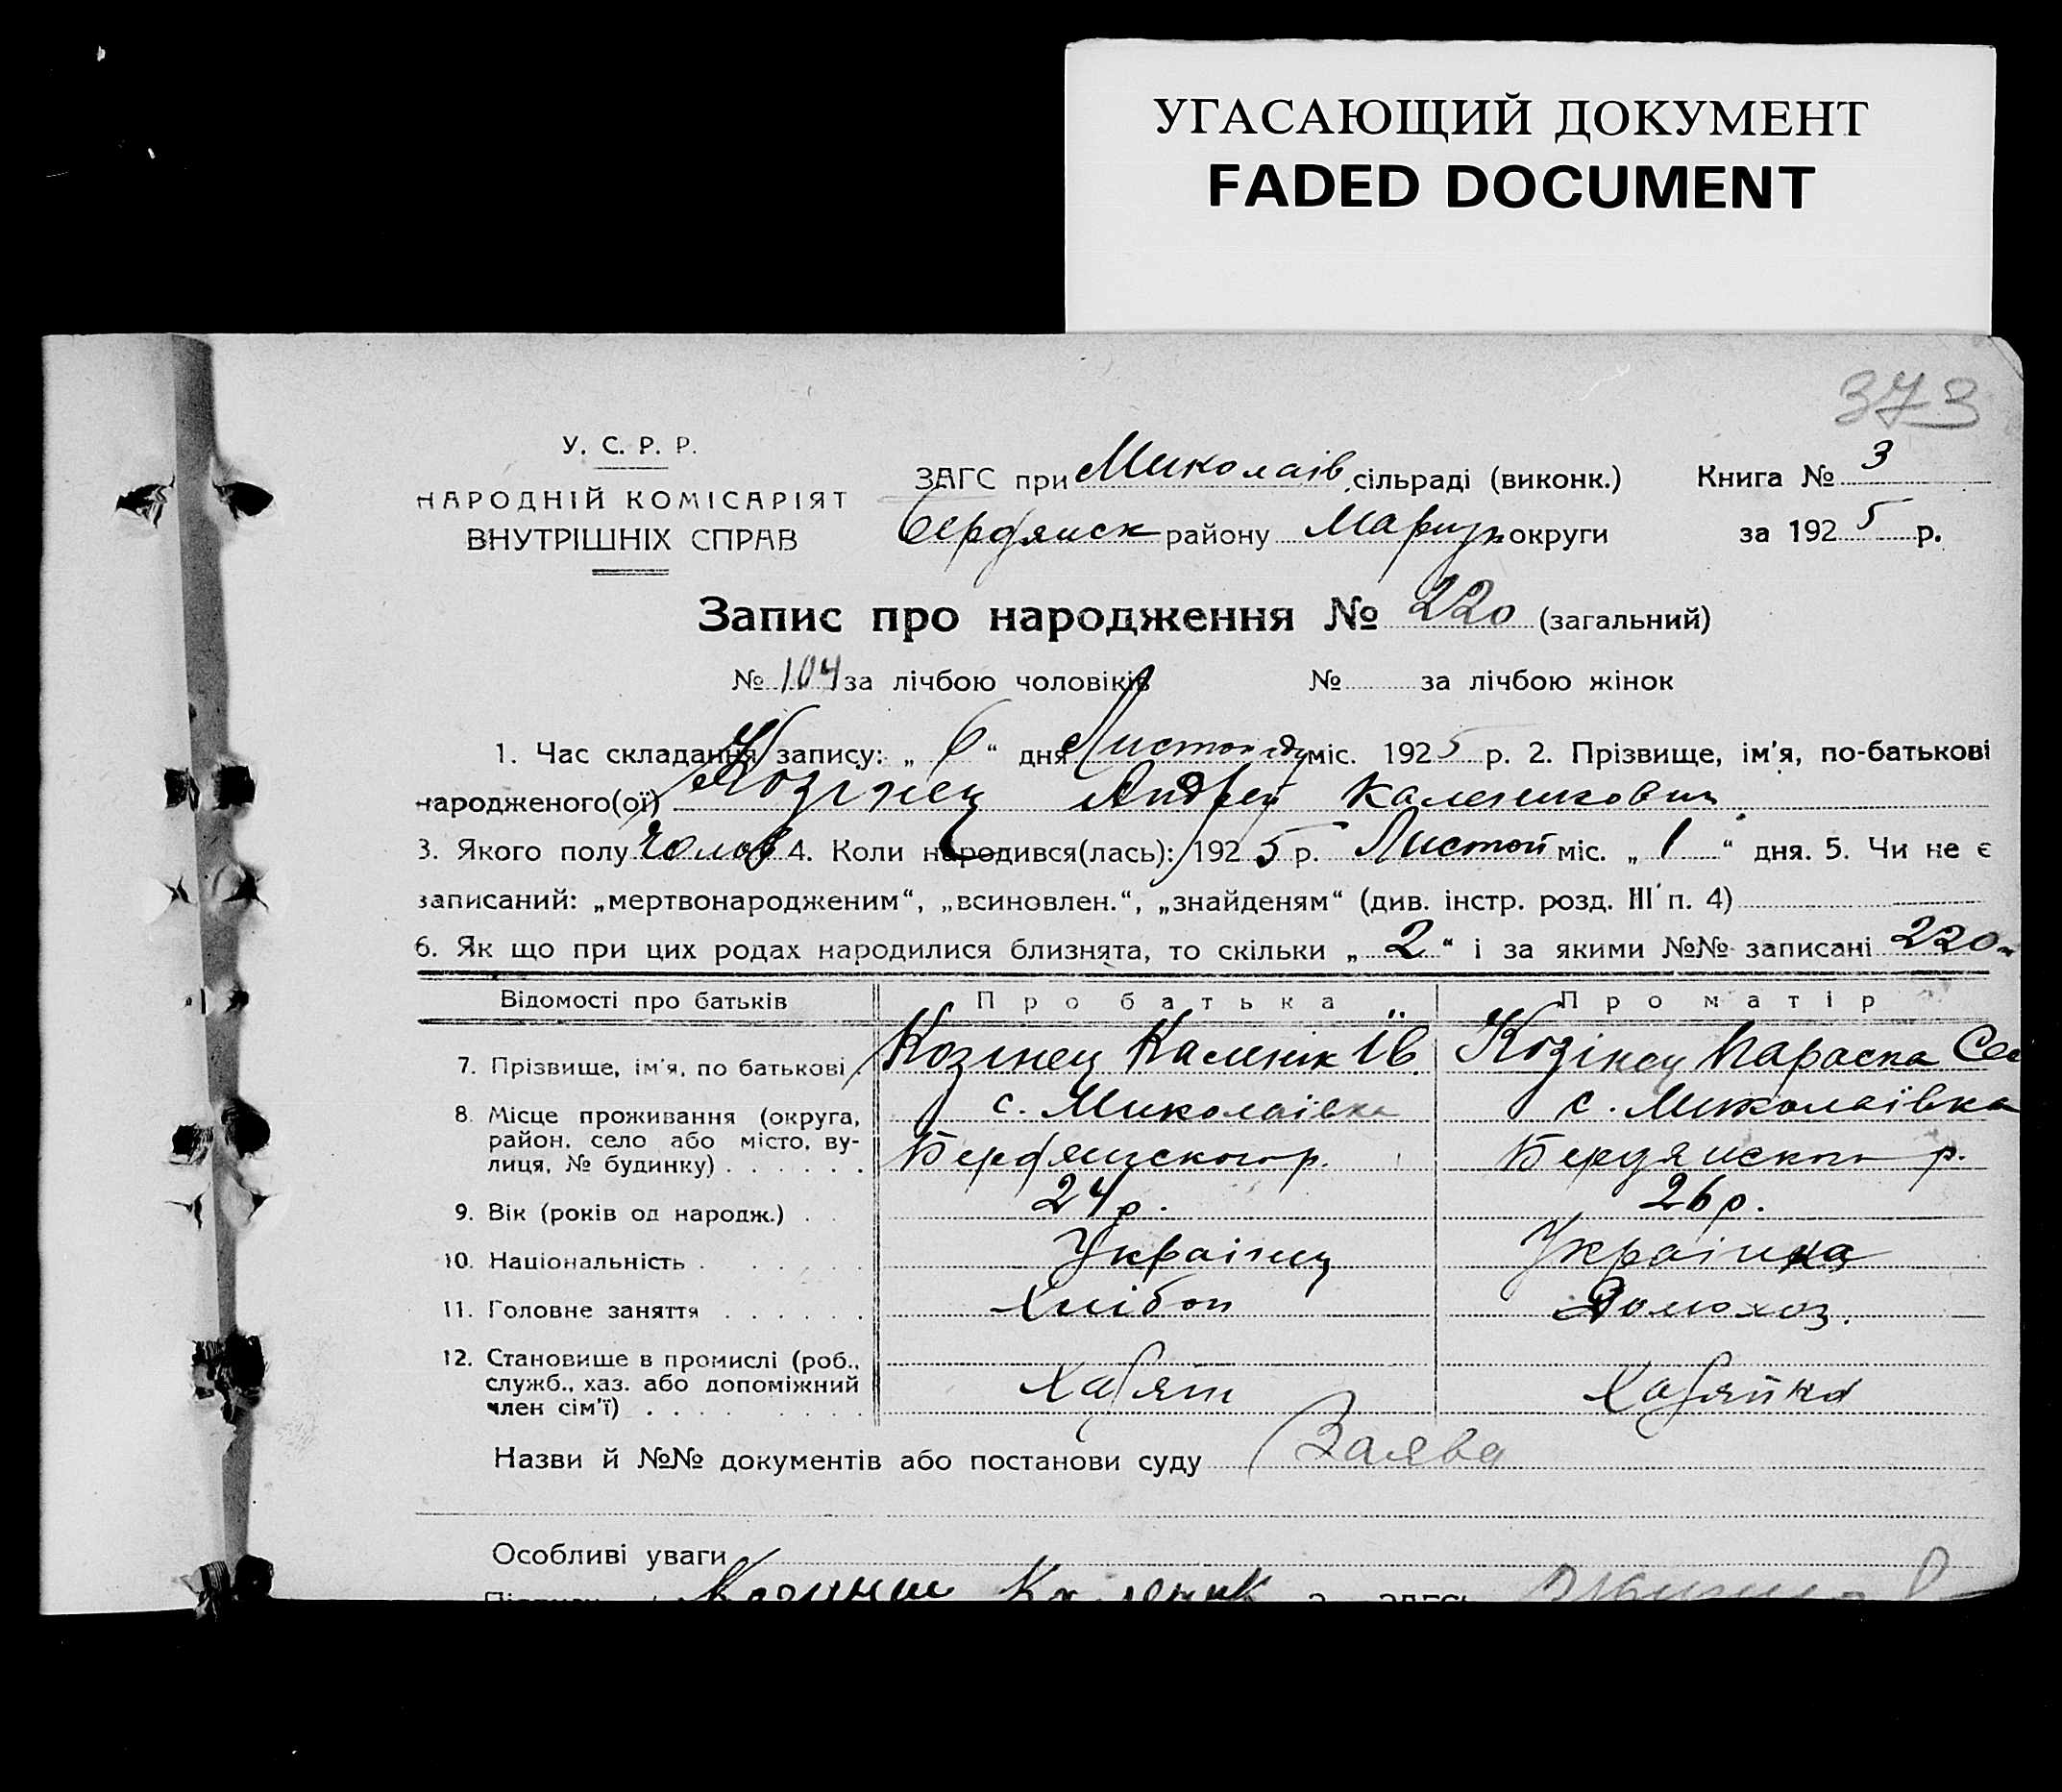 УГАСАЮЩИЙ ДОКУМЕНТ
FADED DOCUMENT
373
У. С. Р. Р.
НАРОДНІЙ КОМІСАРІЯТ
ВНУТРІШНІХ СПРАВ
ЗАГС при Миколаїв. сільраді (виконк.) Книга № 3
Бердянск району Маріуп. округи за 1925 р.
Запис про народження № 220 (загальний)
№ 104 за лічбою чоловіків № за лічбою жінок
1. Час складання запису: „ 6 “ дня Листопаду міс. 1925 р. 2. Прізвище, ім'я, по-батькові
народженого(ої) Козінец Андрей Каленикович
3. Якого полу Чолов 4. Коли народився(лась): 1925 р. Листоп міс. „ 1 “ дня. 5. Чи не є
записаний: „мертвонародженим“, „всиновлен.“, „знайденям“ (див. інстр. розд. III п. 4)
6. Як що при цих родах народилися близнята, то скільки „ 2 “ і за якими №№ записані 220
Відомості про батьків Про батька Про матір
7. Прізвище, ім'я, по батькові Козінец Каленік Ів. Козінец Параска
8. Місце проживання (округа, район, село або місто, вулиця, № будинку) с. Миколаївка с. Миколаївка
Бердянского р. Бердянского р.
9. Вік (років од народж.) 24 р. 26 р.
10. Національність Українец Українка
11. Головне заняття Хлібоп Домохоз.
12. Становище в промислі (роб., служб., хаз. або допоміжний член сім'ї) Хазяін Хазяйка
Назви й №№ документів або постанови суду Заява
Особливі уваги